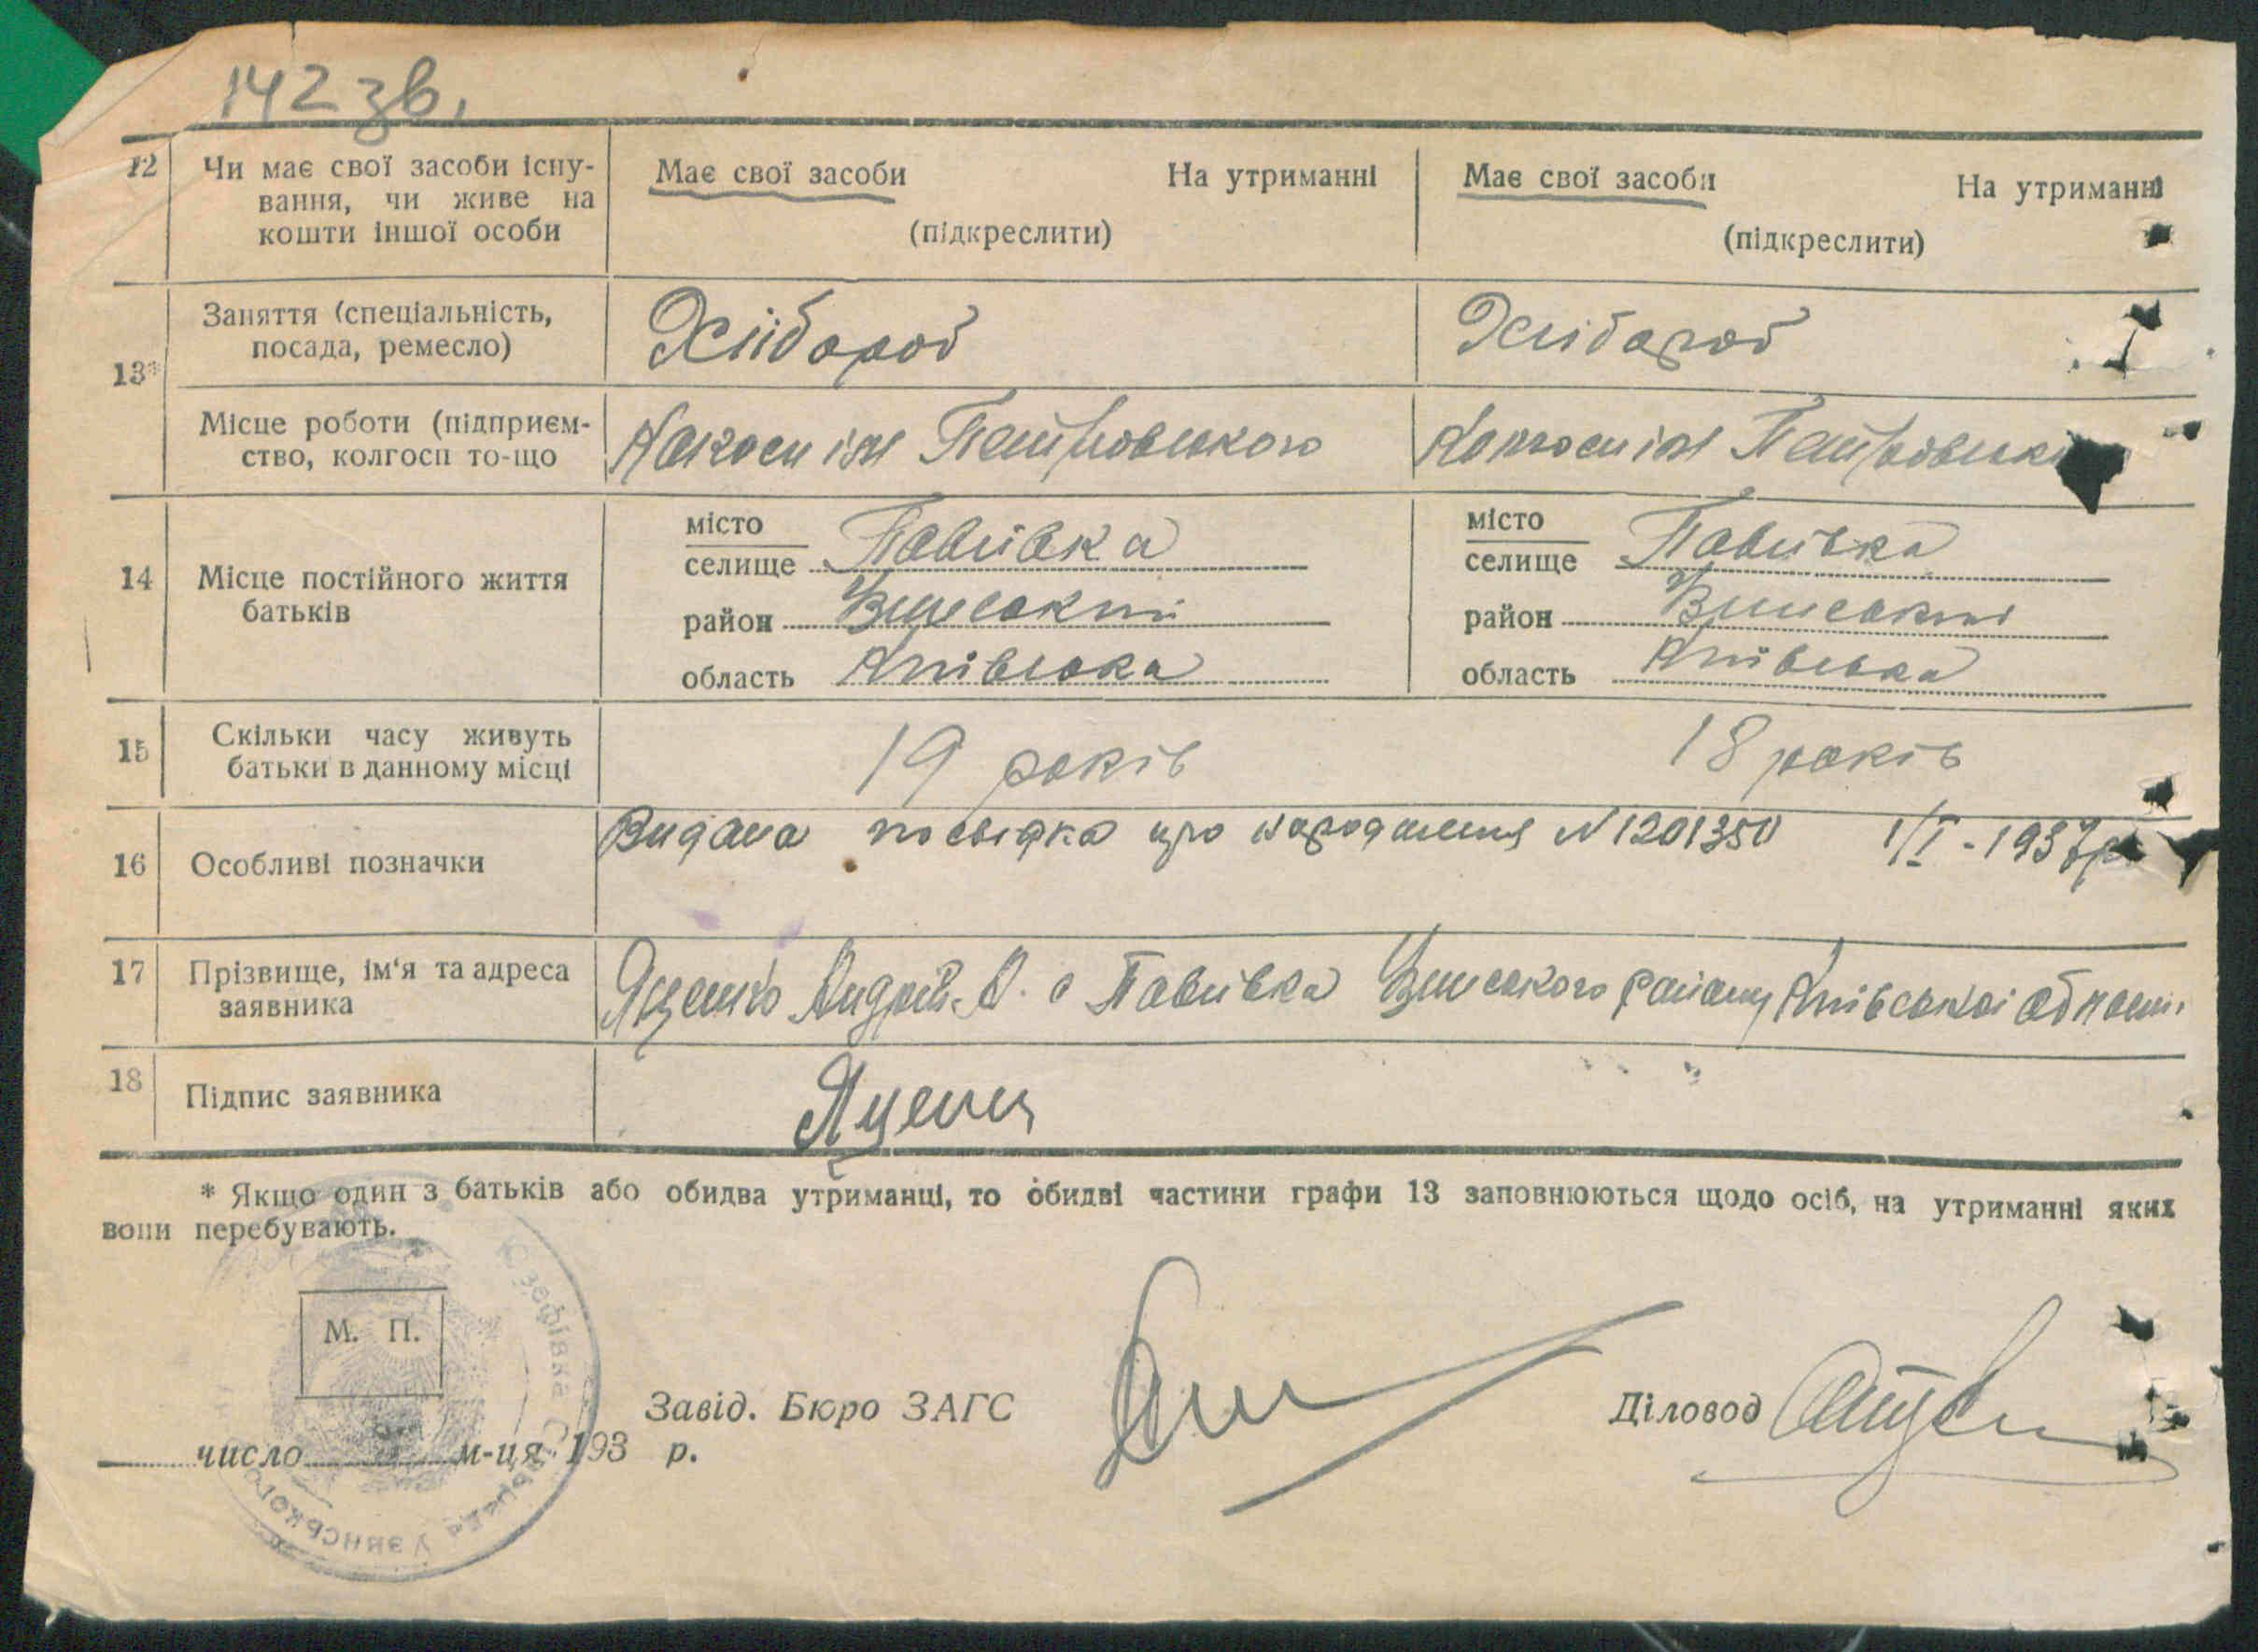 142 зв.
12 Чи має свої засоби існу-
вання, чи живе на
кошти іншої особи
Має свої засоби На утриманні
(підкреслити)
Має свої засоби На утриманні
(підкреслити)
13*
Заняття (спеціальність,
посада, ремесло)
Хлібороб
Хлібороб
Місце роботи (підприєм-
ство, колгосп то-що
Колгосп ім Петровського
Колгосп ім
14 Місце постійного життя
батьків
місто
селище Павлівка
район
область Київська
місто
селище Павлівка
район
область Київська
15 Скільки часу живуть
батьки в данному місці
19 років
18 років
16 Особливі позначки
Видана посвідка про народження N 1201350 1/I - 1937р
17 Прізвище, ім'я та адреса
заявника
Яценко Андрій. А. с Павлівка району Київської област.
18 Підпис заявника
* Якщо один з батьків або обидва утриманці, то обидві частини графи 13 заповнюються щодо осіб, на утриманні яких
вони перебувають.
М. П.
Завід. Бюро ЗАГС
Діловод
число м-ця 193 р.
Узинського